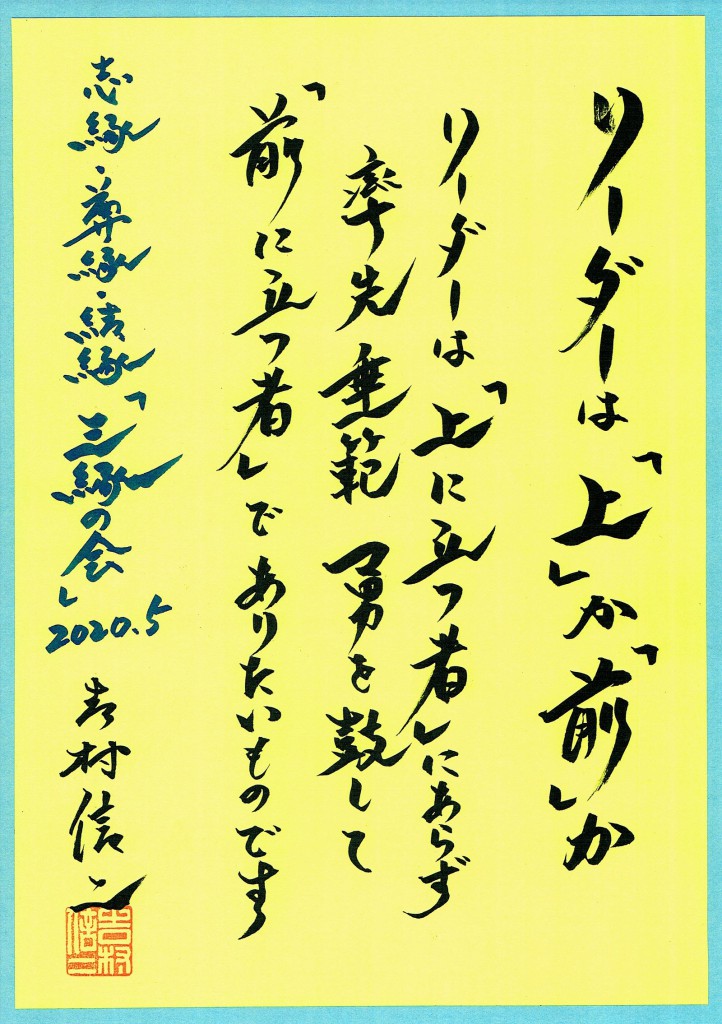 リーダーは「上」か「前」か
リーダーは「上に立つ者」にあらず
率先垂範 勇を鼓して
「前に立つ者」でありたいものです
志縁・尊縁・結縁「三縁の会」
2020.5
吉村信二
吉村信二